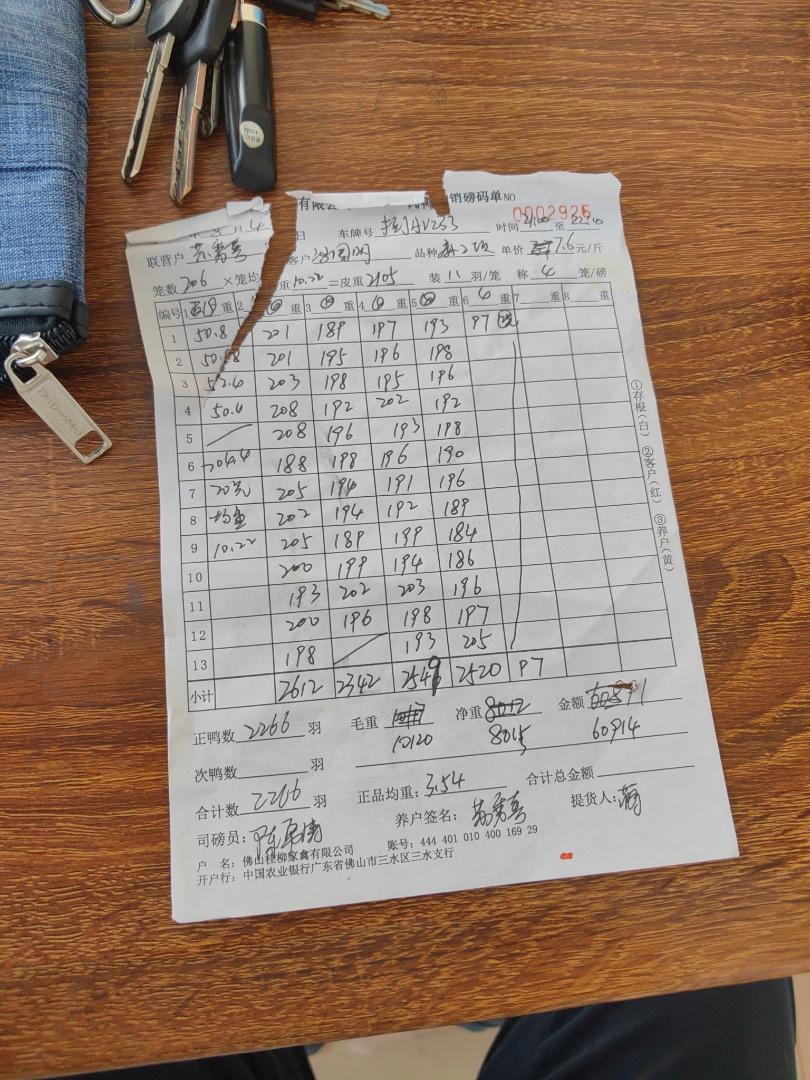 有限公 销磅码单 NO 0002926
月 4 日 车牌号 V253 时间 21:00 至 22:10
联营户 客户 品种 单价 7.6 元/斤
笼数 206 ×笼均 重 10.22 =皮重 2105 装 11 羽/笼 称 4 笼/磅
编号 1 重 2 重 3 重 4 重 5 重 6 重 7 重 8 重
1 50.8 201 189 197 193 97
2 201 195 196 198
3 52.6 203 198 195 196
4 50.4 208 192 202 192
5 208 196 193 198
6 204.4 188 198 196 190
7 20只 205 194 191 196
8 均重 202 194 192 189
9 10.22 205 189 199 184
10 200 199 194 186
11 193 202 203 196
12 200 196 198 197
13 198 193 205
小计 2612 2342 2549 2520 97
正鸭数 2266 羽 毛重 10120 净重 8015 金额 60914
次鸭数 羽
合计数 2266 羽 正品均重: 3.54 合计总金额
司磅员: 养户签名: 提货人:
户 名: 佛山桂柳家禽有限公司 账号: 444 401 010 400 169 29
开户行: 中国农业银行广东省佛山市三水区三水支行
①存根(白) ②客户(红) ③养户(黄)